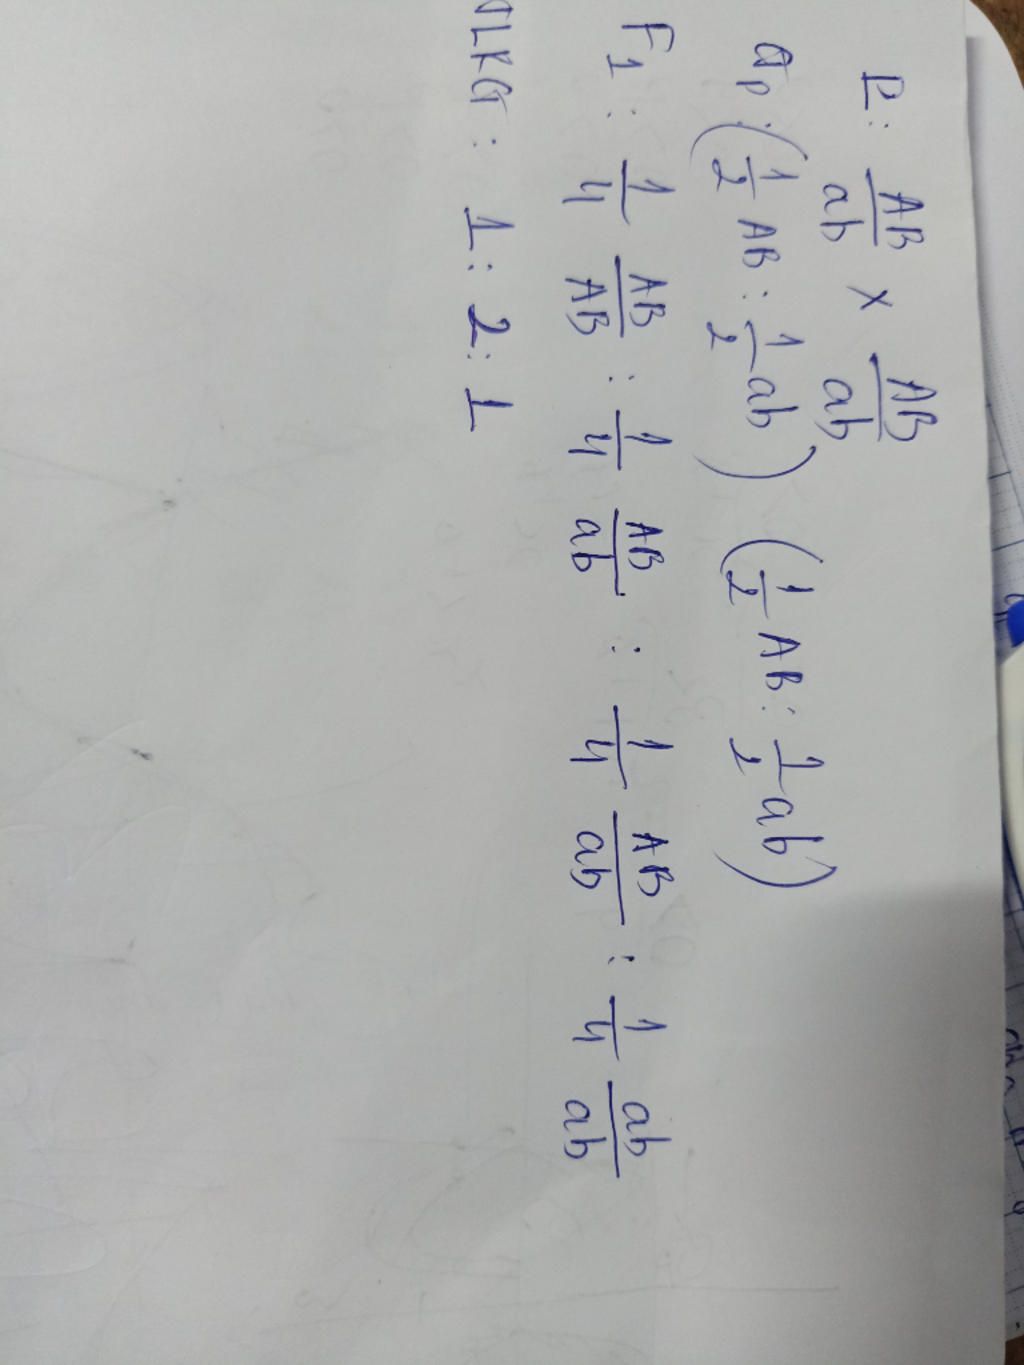 P: AB/ab x AB/ab
Gp: (1/2 AB : 1/2 ab) (1/2 AB : 1/2 ab)
F1: 1/4 AB/AB : 1/4 AB/ab : 1/4 AB/ab : 1/4 ab/ab
TLKG: 1:2:1